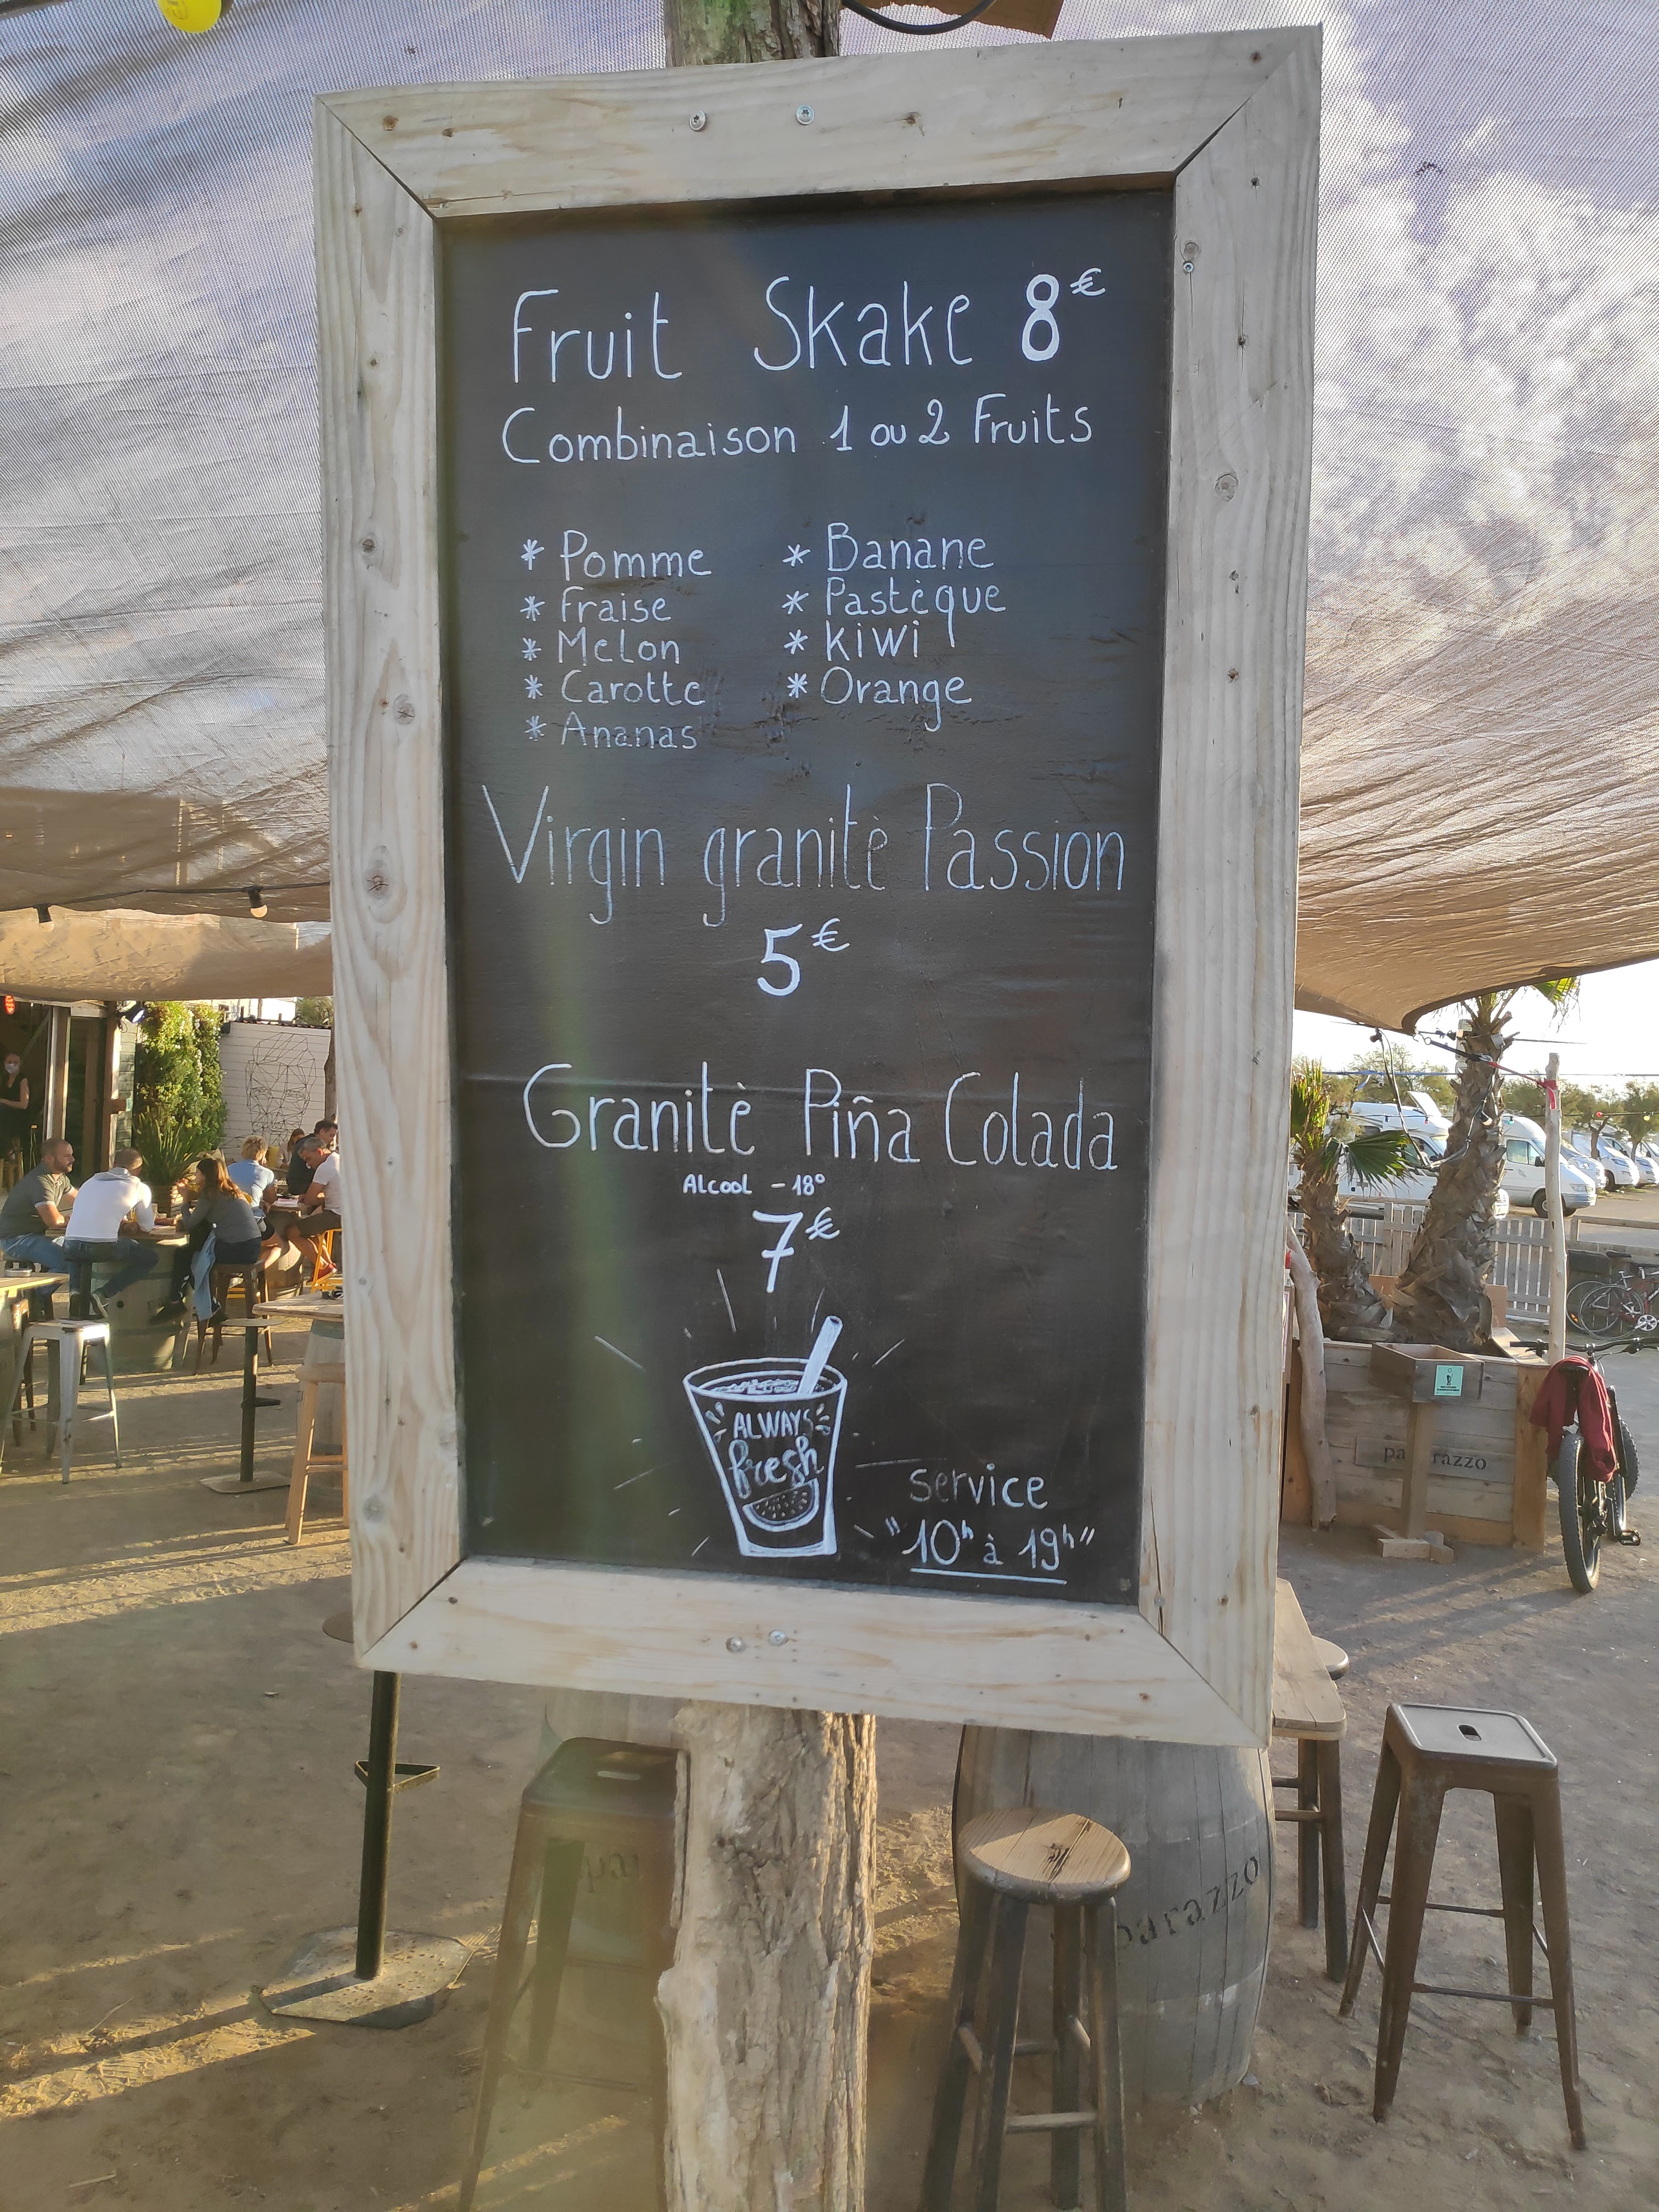 Fruit Skake 8€
Combinaison 1 ou 2 Fruits
* Pomme
* Fraise
* Melon
* Carotte
* Ananas
* Banane
* Pastèque
* Kiwi
* Orange
Virgin granitè Passion
5€
Granitè Piña Colada
Alcool - 18°
7€
ALWAYS
fresh
service
"10h à 19h"
parazzo